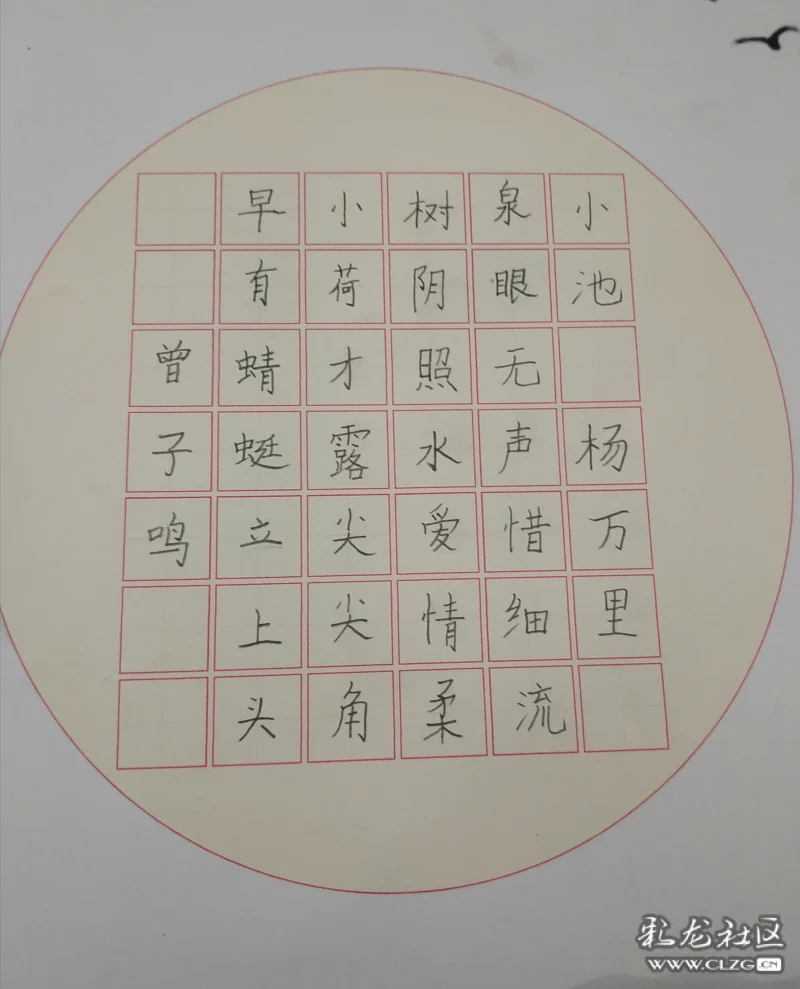 小池 杨万里
泉眼无声惜细流
树阴照水爱情柔
小荷才露尖尖角
早有蜻蜓立上头
曾子鸣
彩龙社区
WWW.CLZG.CN